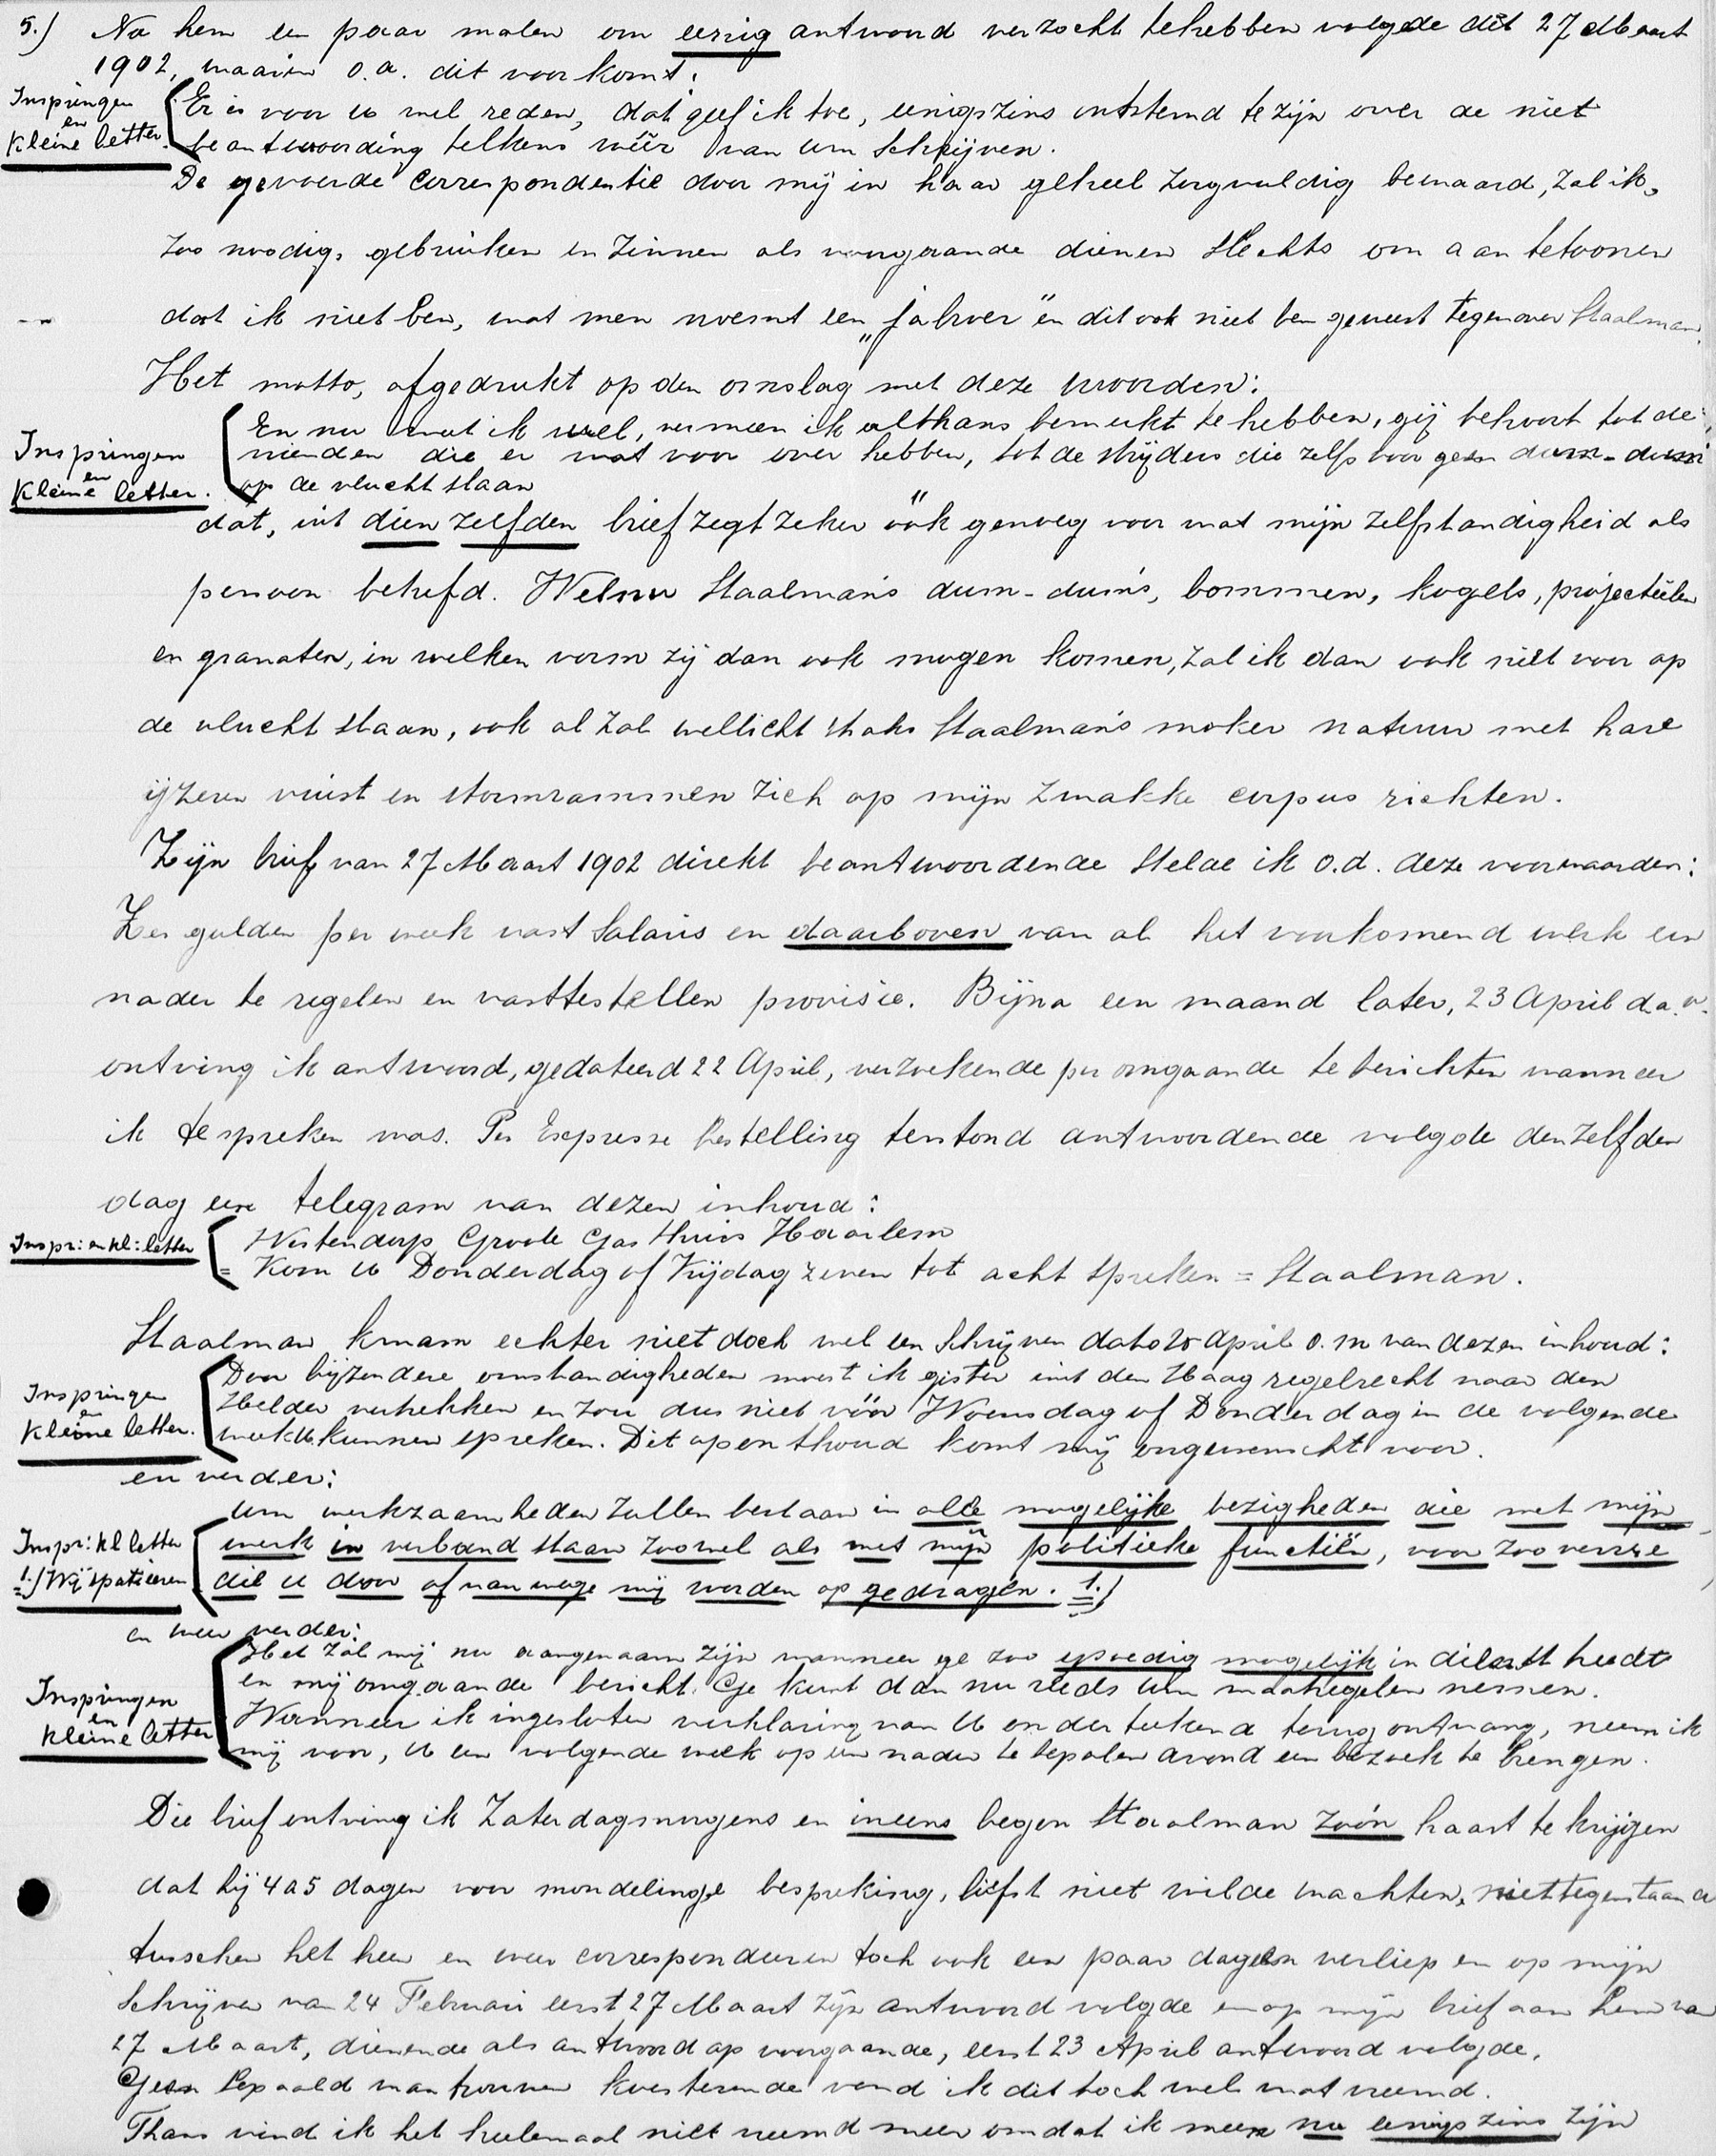 5.) Na hem een paar malen om eenig antwoord verzocht tehebben volgde dit 27 Maart
1902, waarin o.a. dit voorkomt:
Inspringen en kleine letter.
Er is voor U wel reden, dat geef ik toe, eenigszins ontstemd te zijn over de niet
beantwoording telkens wéér van Uw Schrijven.
De gevoerde Correspondentie door mij in haar geheel zorgvuldig bewaard, zal ik,
zoo noodig, gebruiken en zinnen als voorgaande dienen slechts om aan tetoonen
dat ik niet ben, wat men noemt een „jabroer" en dit ook niet ben geweest tegenover Staalman.
Het motto, afgedrukt op den omslag met deze woorden:
Inspringen en kleine letter.
En nu wat ik wel, vermeen ik althans bemerkt te hebben, gij behoort tot de
vrienden die er wat voor over hebben, tot de strijders die zelfs voor geen dum-dum
op de vlucht slaan
dat, uit dien zelfden brief zegt zeker óók genoeg voor wat mijn zelfstandigheid als
persoon betrefd. Welnu Staalman's dum-dum's, bommen, kogels, projectielen
en granaten, in welken vorm zij dan ook mogen komen, zal ik dan ook niet voor op
de vlucht slaan, ook al zal wellicht straks Staalman's moker natuur met hare
ijzeren vuist en stormrammen zich op mijn zwakke corpus richten.
Zijn brief van 27 Maart 1902 direkt beantwoordende stelde ik o.d. deze voorwaarden:
Zes gulden per week vast Salaris en daarboven van al het voorkomend werk een
nader te regelen en vasttestellen provisie. Bijna een maand later, 23 April d.a.v.
ontving ik antwoord, gedateerd 22 April, verzoekende per omgaande te berichten wanneer
ik te spreken was. Per Expresse bestelling terstond antwoordende volgde denzelfden
dag een telegram van dezen inhoud:
Inspr: en kl: letter
Westendorp Groote Gasthuis Haarlem
= Kom U Donderdag of Vrijdag zeven tot acht spreken = Staalman.
Staalman kwam echter niet doch wel een Schrijven dato 25 April o.m van dezen inhoud:
Inspringen en kleine letter.
Door bijzondere omstandigheden moest ik gister uit den Haag regelrecht naar den
Helder vertrekken en zou dus niet vóór Woensdag of Donderdag in de volgende
week U kunnen spreken. Dit oponthoud komt mij ongewenscht voor.
en verder:
Inspr: kl letter
1.) Wij spatieeren
Uw werkzaamheden zullen bestaan in alle mogelijke bezigheden die met mijn
werk in verband staan zoowel als met mijn politieke functiën, voor zooverre
die U door of vanwege mij worden opgedragen. 1.)
en weer verder:
Inspringen en kleine letter
Het zal mij nu aangenaam zijn wanneer ge zoo spoedig mogelijk in dienst treedt
en mij omgaande bericht. Ge kunt dan nu reeds Uw maatregelen nemen.
Wanneer ik ingesloten verklaring van U onderteekend terug ontvang, neem ik
mij voor, U een volgende week op een nader te bepalen avond een bezoek te brengen.
Die brief ontving ik Zaterdagsmorgens en ineens begon Staalman zóón haast te krijgen
dat hij 4 a 5 dagen voor mondelinge bespreking, liefst niet wilde wachten, niettegenstaande
tusschen het heen en weer correspondeeren toch ook een paar dagen verliep en op mijn
Schrijven van 24 Februari eerst 27 Maart zijn antwoord volgde en op mijn brief aan hem van
27 Maart, dienende als antwoord op voorgaande, eerst 23 April antwoord volgde.
Geen bepaald wantrouwen koesterende vond ik dit toch wel wat vreemd.
Thans vind ik het heelemaal niet vreemd meer omdat ik meen nu eenigszins zijn